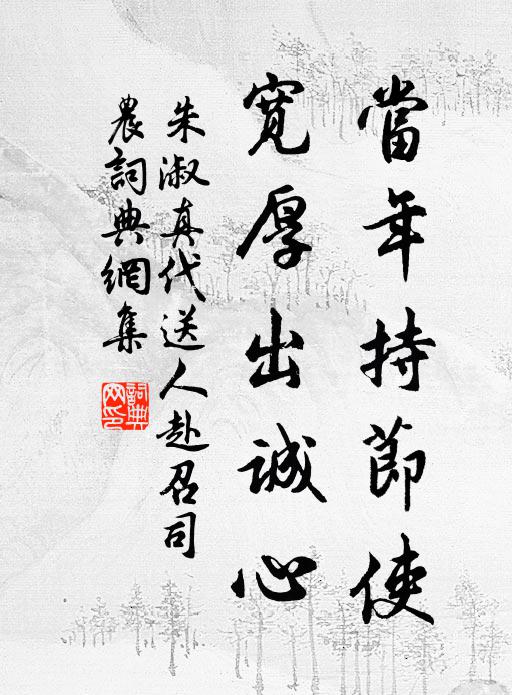 當年持節使
寛厚出誠心
朱淑真代送人赴召司
農詞典網集
詞典網印